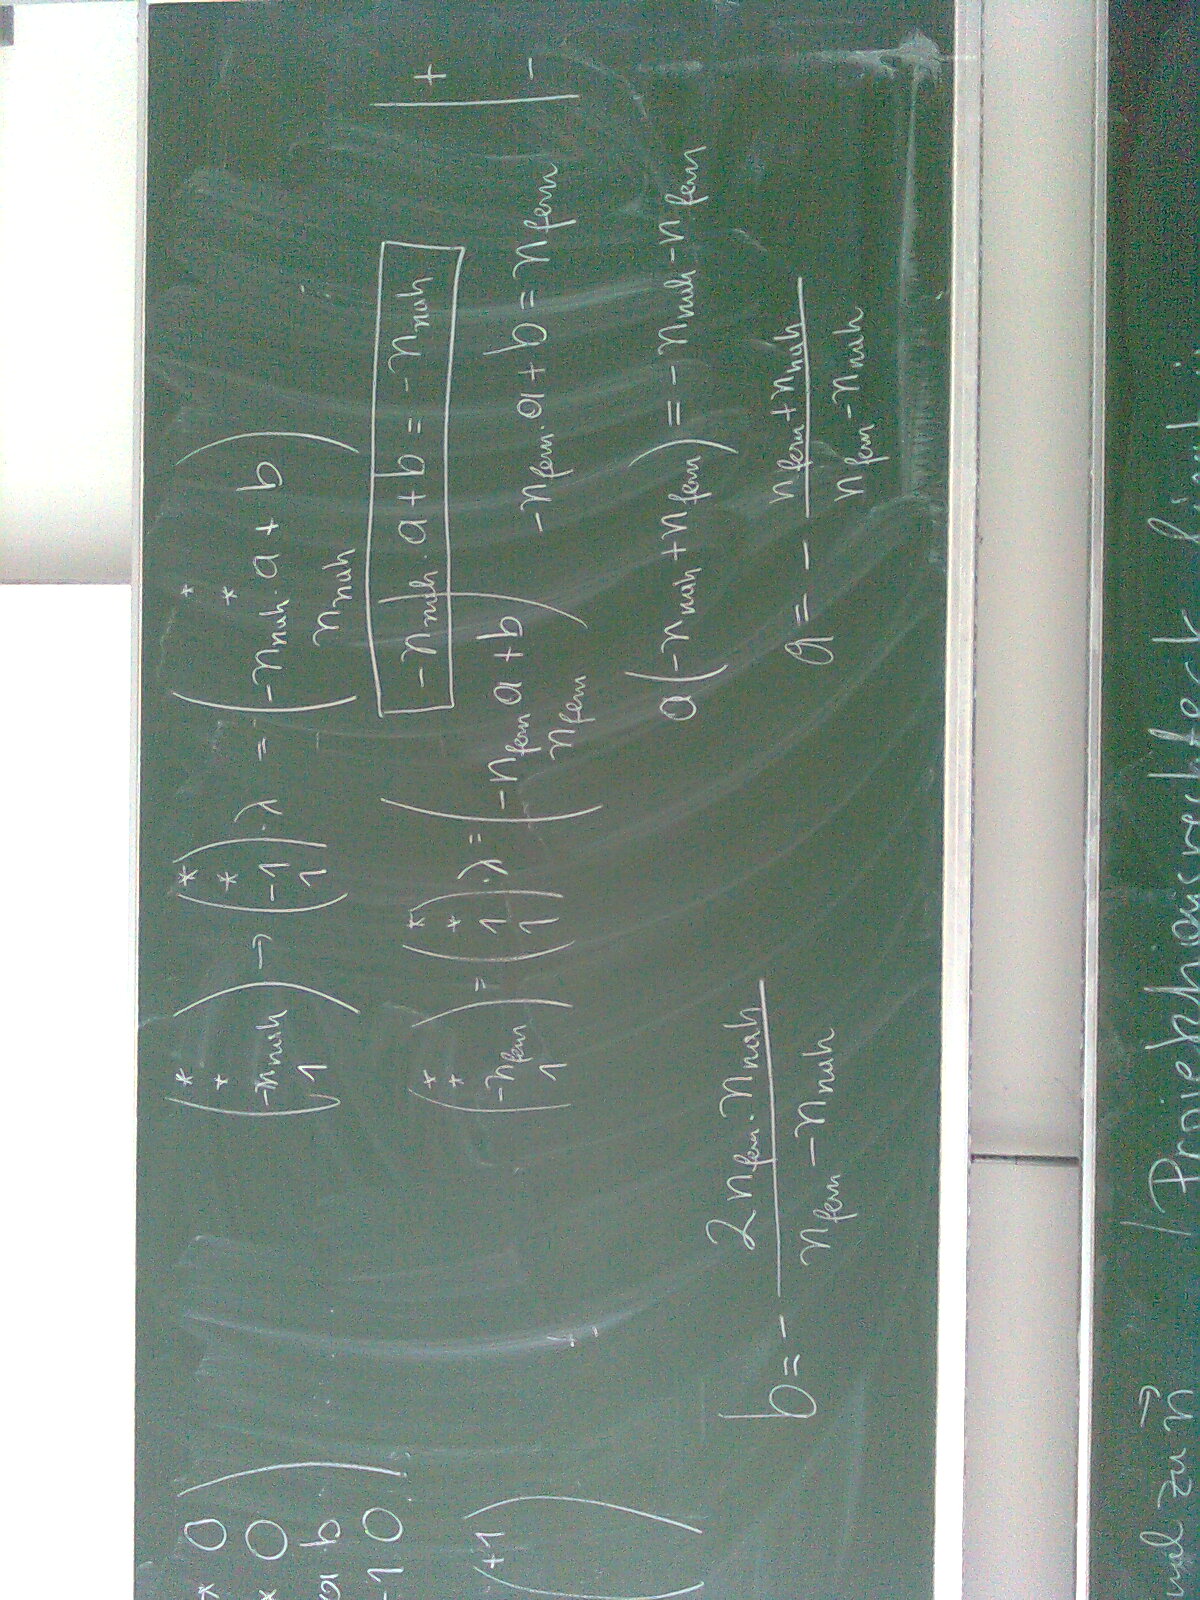 * 0
* 0
a b
-1 0
+1
(* * -n_nah 1) → (* * -1 1) · λ = (* * -n_nah · a + b n_nah)
-n_nah · a + b = -n_nah | +
(* * -n_fern 1) = (* * 1 1) · λ = (-n_fern a + b n_fern)
-n_fern · a + b = n_fern | -
a (-n_nah + n_fern) = -n_nah - n_fern
b = - 2 n_fern · n_nah / n_fern - n_nah
a = - n_fern + n_nah / n_fern - n_nah
zu n⃗
Projektionsrechteck liegt